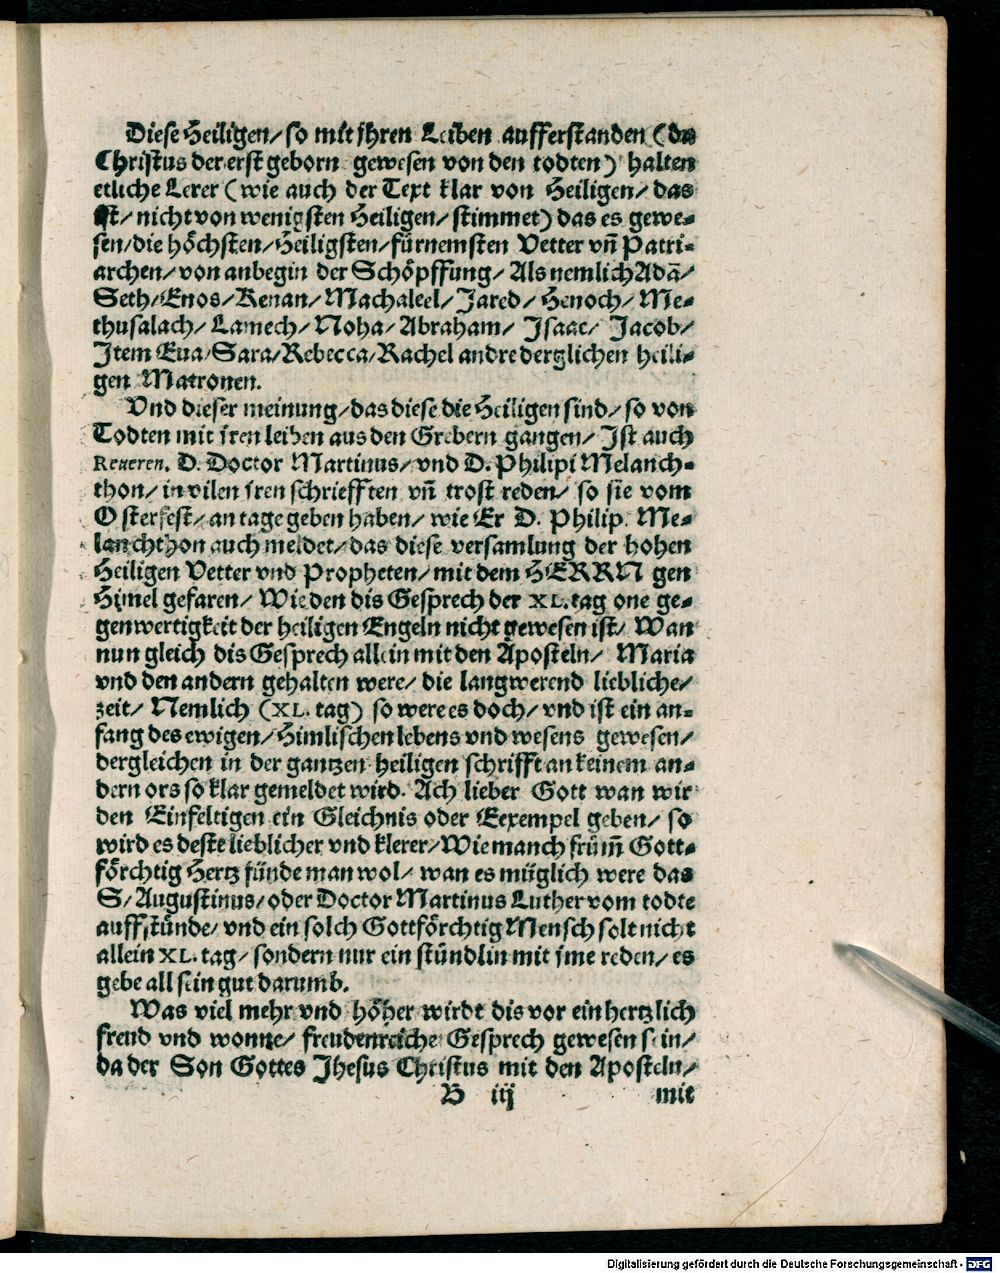 Diese Heiligen/ so mit jhren Leiben aufferstanden (da
Christus der erst geborn gewesen von den todten) halten
etliche Lerer (wie auch der Text klar von Heiligen/ das
ist/ nicht von wenigsten Heiligen/ stimmet) das es gewe-
sen/ die höchsten/ Heiligsten/ fürnemsten Vetter vn̄ Patri-
archen/ von anbegin der Schöpffung/ Als nemlich Adā/
Seth/ Enos/ Kenan/ Machaleel/ Jared/ Henoch/ Me-
thusalach/ Lamech/ Noha/ Abraham/ Isaac/ Jacob/
Item Eua/ Sara/ Rebecca/ Rachel andre derglichen heili-
gen Matronen.
Vnd dieser meinung/ das diese die Heiligen sind/ so von
Todten mit jren leiben aus den Grebern gangen/ Ist auch
Reueren. D. Doctor Martinus/ vnd D. Philipi Melanch-
thon/ in vilen jren schriefften vn̄ trost reden/ so sie vom
Osterfest/ an tage geben haben/ wie Er D. Philip. Me-
lanchthon auch meldet/ das diese versamlung der hohen
Heiligen Vetter vnd Propheten/ mit dem HERRN gen
Himel gefaren/ Wie den dis Gesprech der XL. tag one ge-
genwertigkeit der heiligen Engeln nicht gewesen ist/ Wan
nun gleich dis Gesprech allein mit den Aposteln/ Maria
vnd den andern gehalten were/ die langwerend liebliche/
zeit/ Nemlich (XL. tag) so were es doch/ vnd ist ein an-
fang des ewigen/ Himlischen lebens vnd wesens gewesen/
dergleichen in der gantzen heiligen schrifft an keinem an-
dern ors so klar gemeldet wird. Ach lieber Gott wan wir
den Einfeltigen ein Gleichnis oder Eexempel geben/ so
wird es deste lieblicher vnd klerer/ Wie manch früm̄ Gott-
förchtig Hertz fünde man wol/ wan es müglich were das
S/ Augustinus/ oder Doctor Martinus Luther vom todte
auff stünde/ vnd ein solch Gottförchtig Mensch solt nicht
allein XL. tag/ sondern nur ein stündlin mit jme reden/ es
gebe all sein gut darumb.
Was viel mehr vnd höher wirdt dis vor ein hertzlich
freud vnd wonne/ freudenreiche Gesprech gewesen sein/
da der Son Gottes Jhesus Christus mit den Aposteln/
B iij mit
Digitalisierung gefördert durch die Deutsche Forschungsgemeinschaft - DFG